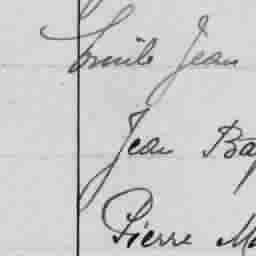 Emile Jean
Jean Ba
Pierre Ma